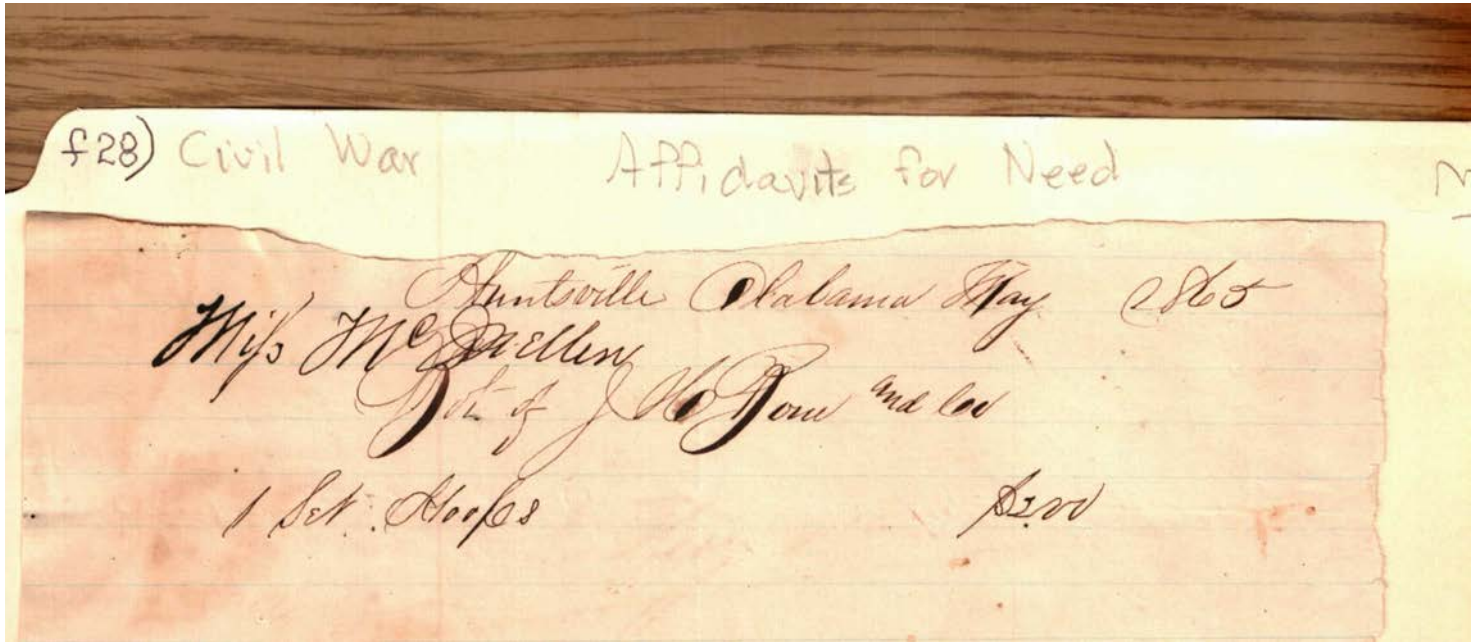 f28) Civil War Affidavits for Need
Huntsville Alabama May 1865
Miss Mc
Bot of J and Co
1 Set Hoops $2.00